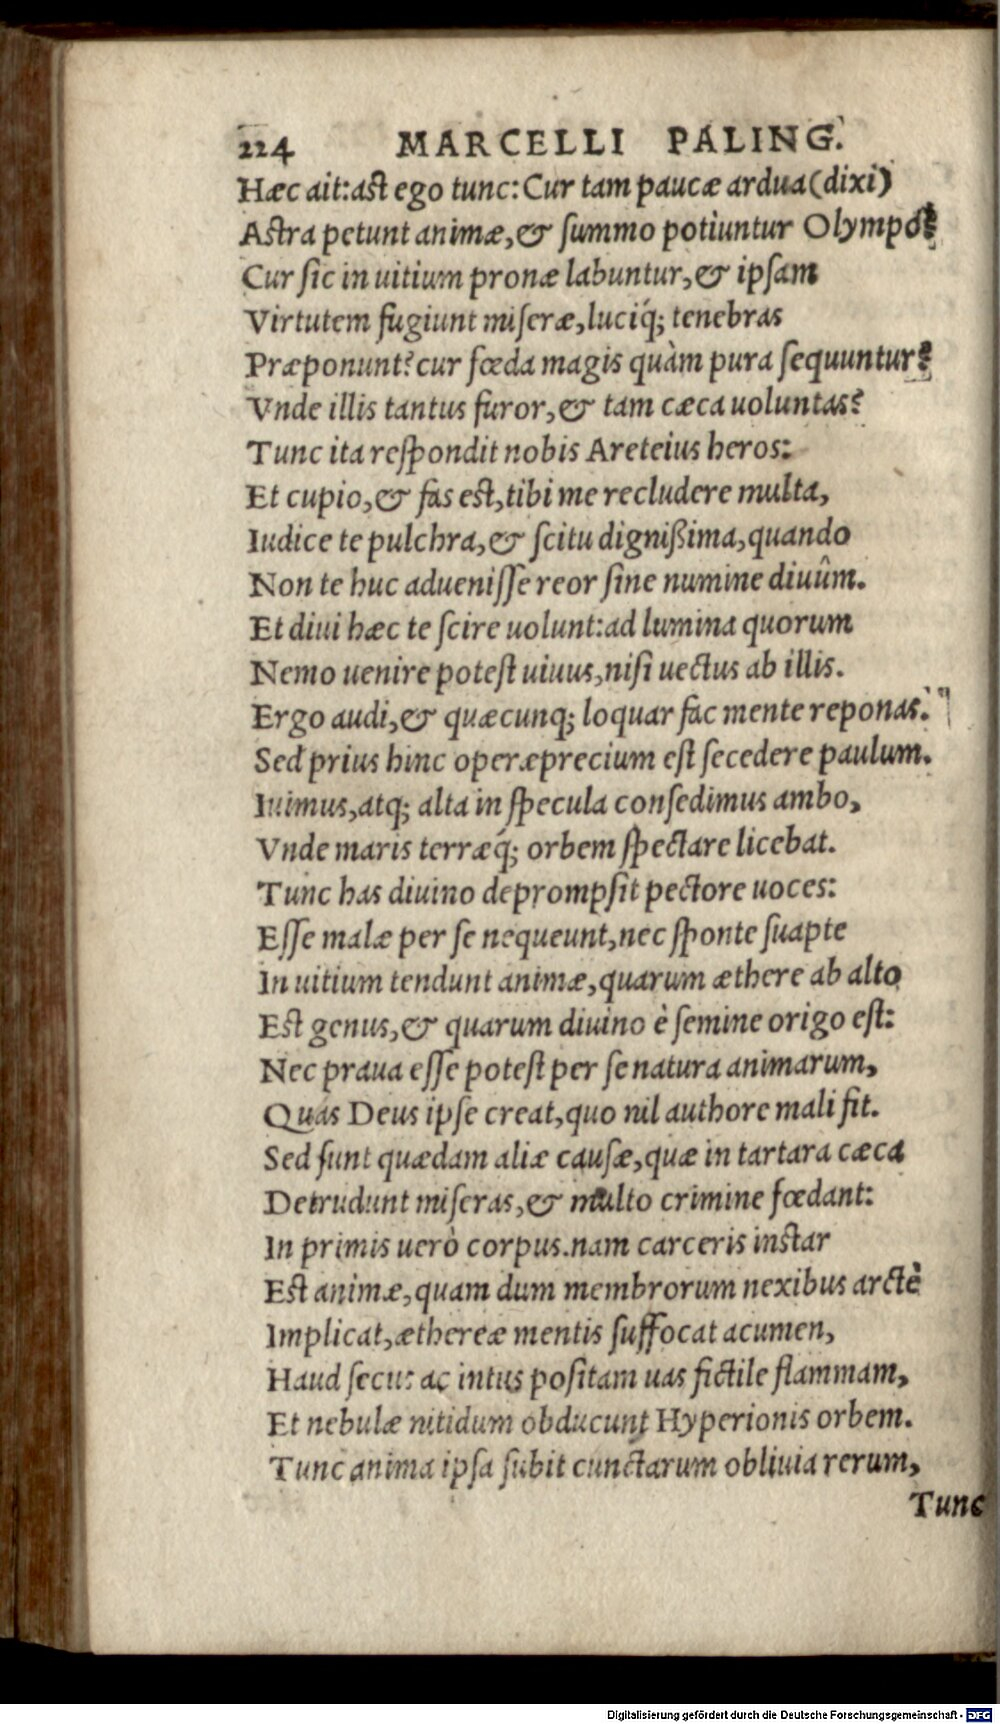 224 MARCELLI PALING.
Hæc ait: ast ego tunc: Cur tam paucæ ardua (dixi)
Astra petunt animæ, & summo potiuntur Olympo?
Cur sic in uitium pronæ labuntur, & ipsam
Virtutem fugiunt miseræ, luciq́; tenebras
Præponunt? cur fœda magis quàm pura sequuntur?
Vnde illis tantus furor, & tam cæca uoluntas?
Tunc ita respondit nobis Areteius heros:
Et cupio, & fas est, tibi me recludere multa,
Iudice te pulchra, & scitu dignißima, quando
Non te huc aduenisse reor sine numine diuûm.
Et diui hæc te scire uolunt: ad lumina quorum
Nemo uenire potest uiuus, nisi uectus ab illis.
Ergo audi, & quæcunq; loquar fac mente reponas.
Sed prius hinc operæprecium est secedere paulum.
Iuimus, atq; alta in specula consedimus ambo,
Vnde maris terræq́; orbem spectare licebat.
Tunc has diuino deprompsit pectore uoces:
Esse malæ per se nequeunt, nec sponte suapte
In uitium tendunt animæ, quarum æthere ab alto
Est genus, & quarum diuino è semine origo est:
Nec praua esse potest per se natura animarum,
Quas Deus ipse creat, quo nil authore mali fit.
Sed sunt quædam aliæ causæ, quæ in tartara cæca
Detrudunt miseras, & multo crimine fœdant:
In primis uerò corpus. nam carceris instar
Est animæ, quam dum membrorum nexibus arctè
Implicat, æthereæ mentis suffocat acumen,
Haud secus ac intus positam uas fictile flammam,
Et nebulæ nitidum obducunt Hyperionis orbem.
Tunc anima ipsa subit cunctarum obliuia rerum,
Tunc
Digitalisierung gefördert durch die Deutsche Forschungsgemeinschaft - DFG